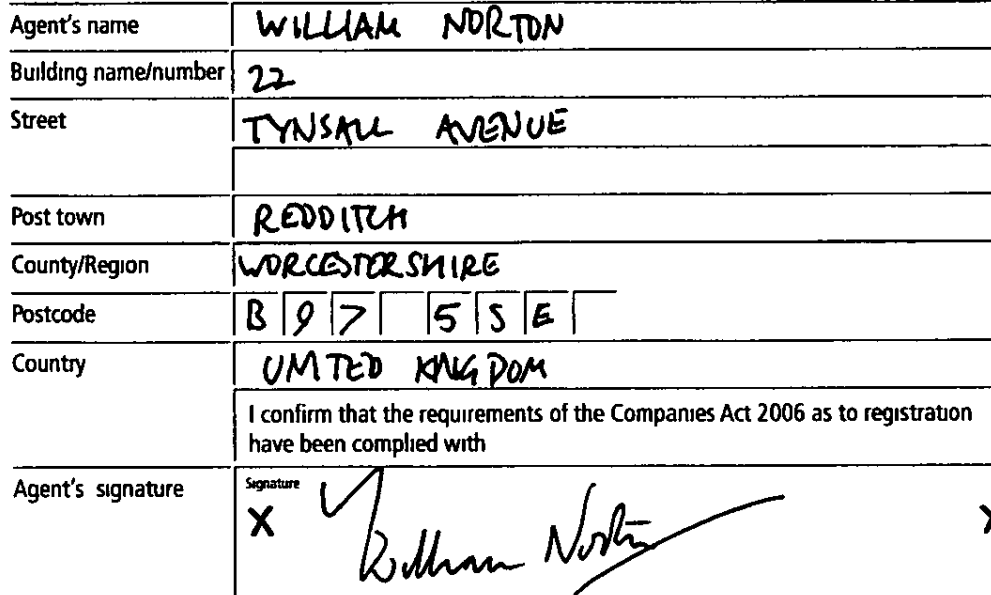 Agent's name WILLIAM NORTON
Building name/number 22
Street TYNSALL AVENUE
Post town REDDITCH
County/Region WORCESTERSHIRE
Postcode B97 5SE
Country UNITED KINGDOM
I confirm that the requirements of the Companies Act 2006 as to registration
have been complied with
Agent's signature Signature
X William Norton X